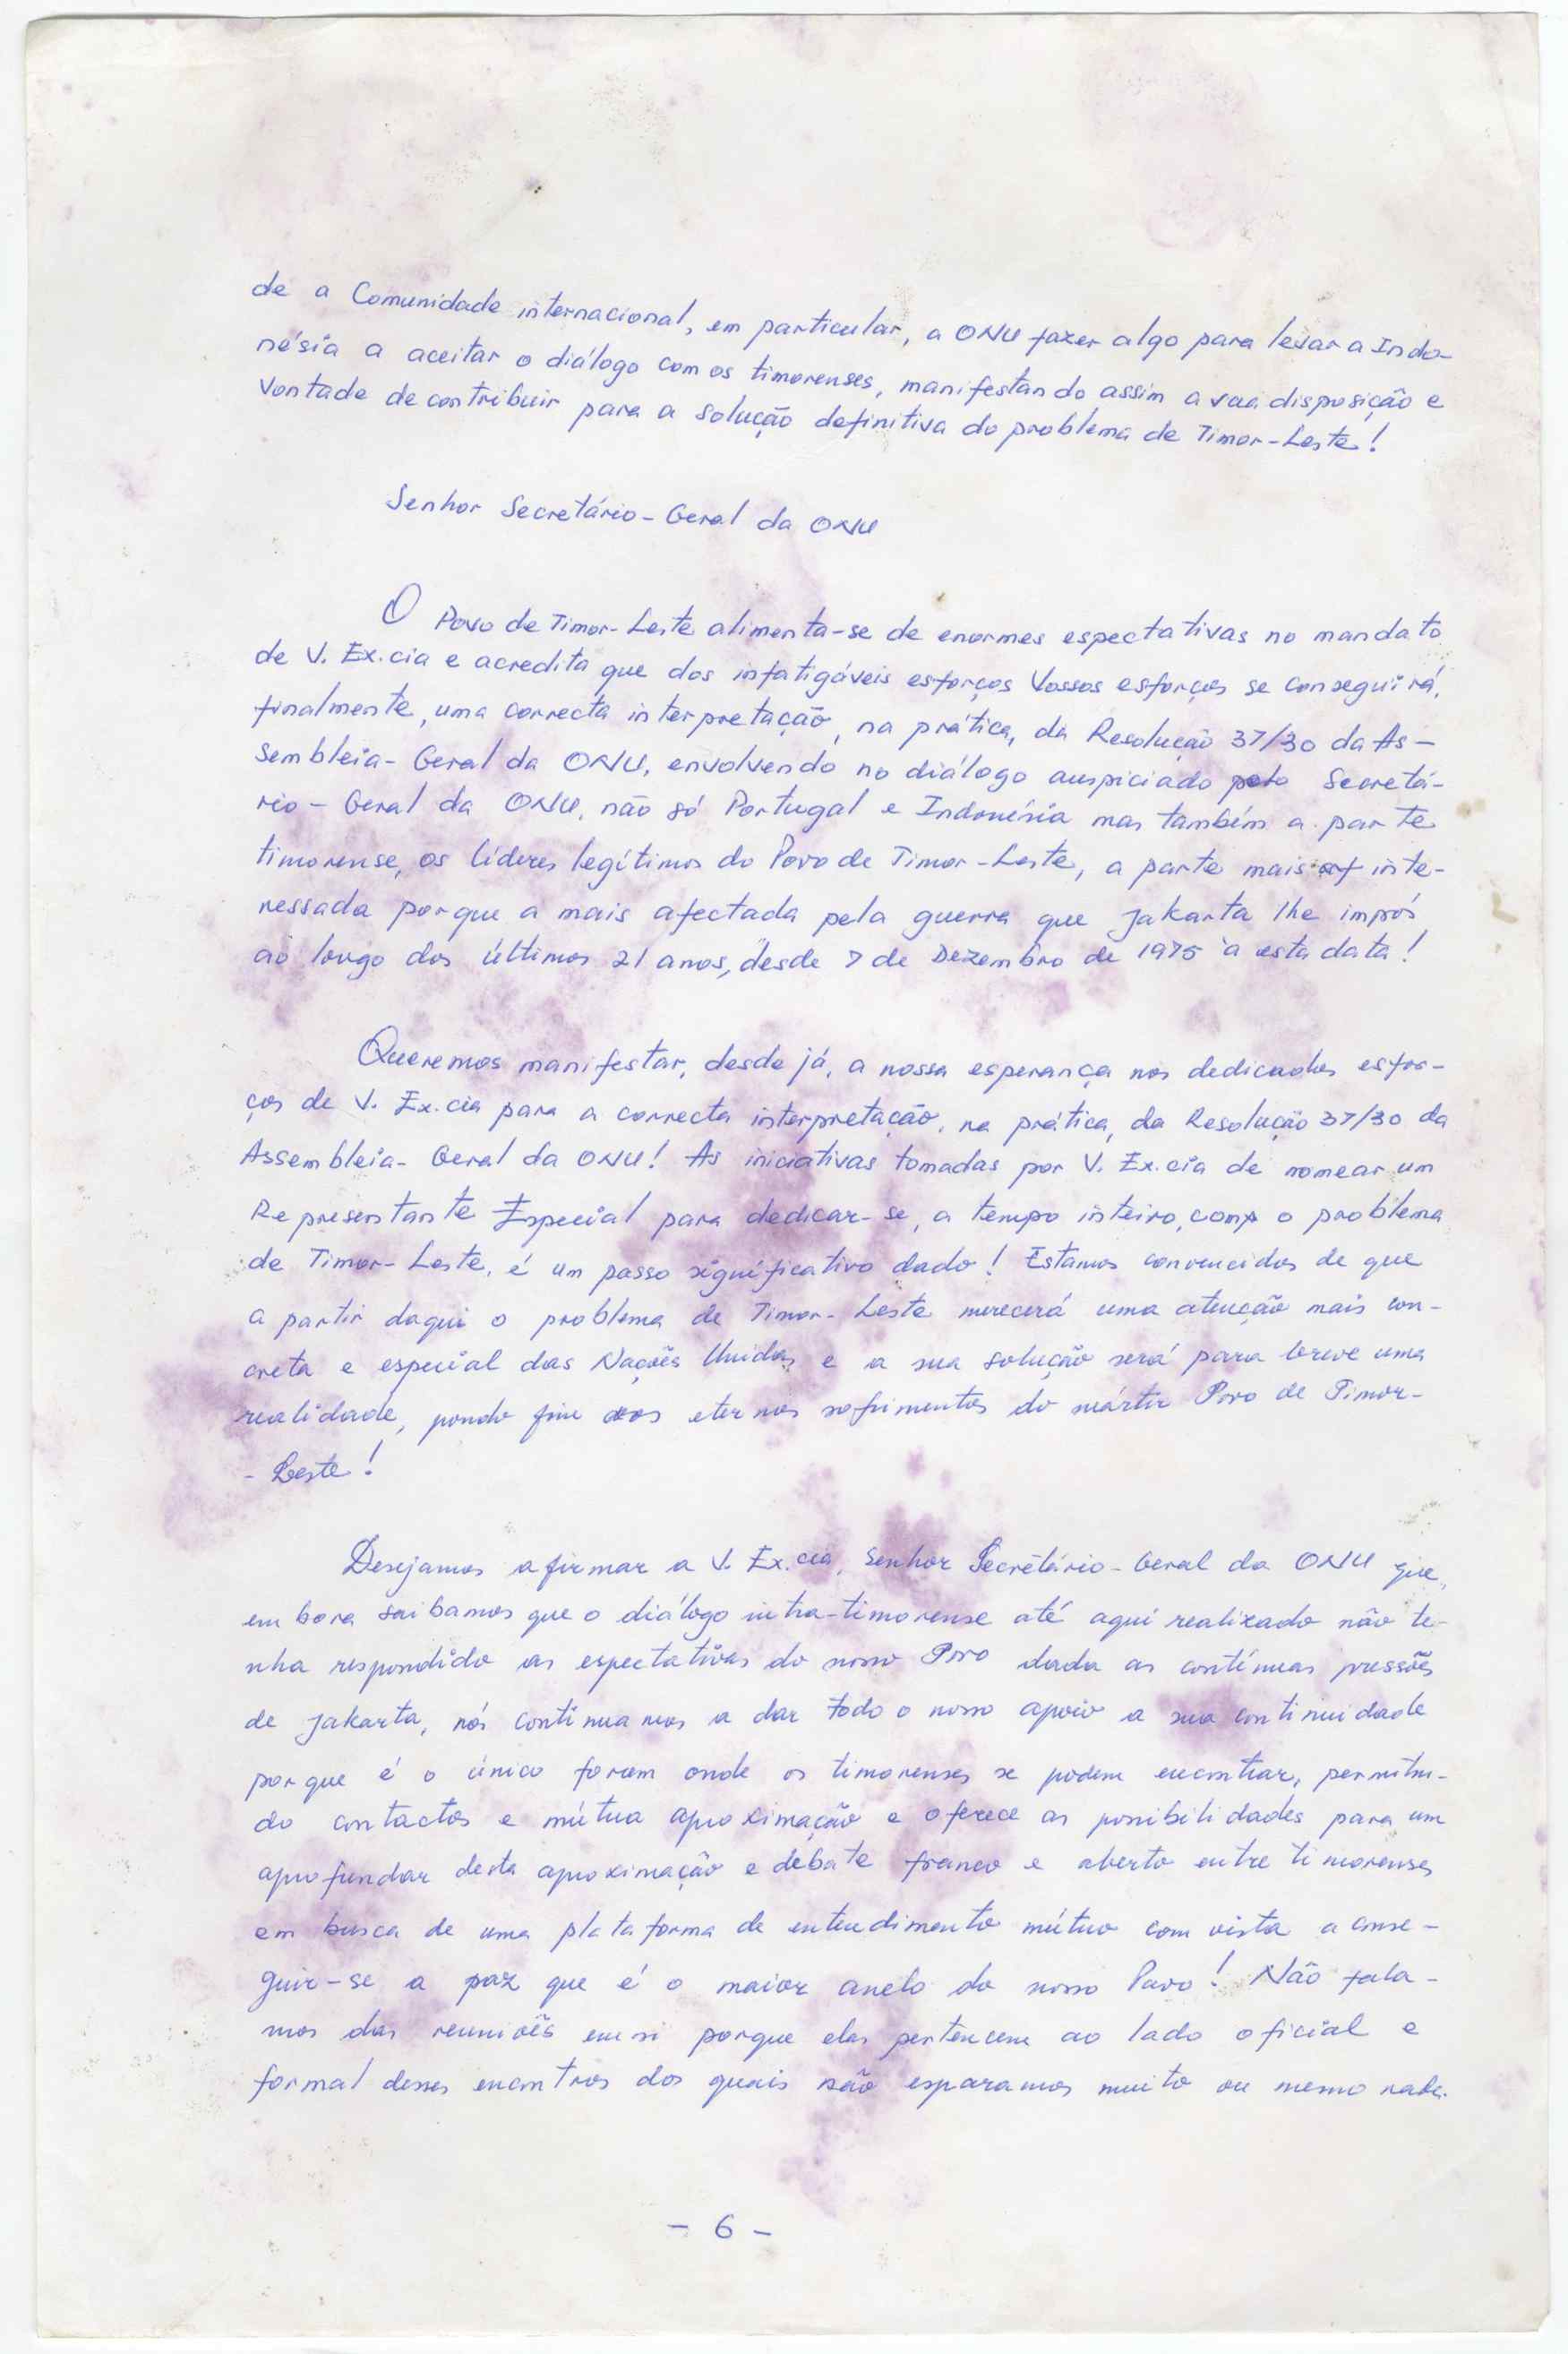 de a Comunidade internacional, em particular, a ONU fazer algo para levar a Indo-
nésia a aceitar o diálogo com os timorenses, manifestando assim a sua disposição e
vontade de contribuir para a solução definitiva do problema de Timor-Leste!
Senhor Secretário-Geral da ONU
O Povo de Timor-Leste alimenta-se de enormes espectativas no mandato
de V. Ex.cia e acredita que dos infatigáveis esforços Vossos esforços se conseguirá,
finalmente, uma correcta interpretação, na prática, da Resolução 37/30 da As-
sembleia-Geral da ONU, envolvendo no diálogo auspiciado pelo Secretá-
rio-Geral da ONU, não só Portugal e Indonésia mas também a parte
timorense, os líderes legítimos do Povo de Timor-Leste, a parte mais inte-
ressada porque a mais afectada pela guerra que Jakarta lhe impôs
ao longo dos últimos 21 anos, desde 7 de Dezembro de 1975 à esta data!
Queremos manifestar, desde já, a nossa esperança nos dedicados esfor-
ços de V. Ex.cia para a correcta interpretação, na prática, da Resolução 37/30 da
Assembleia-Geral da ONU! As iniciativas tomadas por V. Ex.cia de nomear um
Representante Especial para dedicar-se, a tempo inteiro, com o problema
de Timor-Leste, é um passo significativo dado! Estamos convencidos de que
a partir daqui o problema de Timor-Leste merecerá uma atenção mais con-
creta e especial das Nações Unidas e a sua solução será para breve uma
realidade, pondo fim aos eternos sofrimentos do mártir Povo de Timor-
-Leste!
Desejamos afirmar a V. Ex.cia, Senhor Secretário-Geral da ONU que,
embora saibamos que o diálogo intra-timorense até aqui realizado não te-
nha respondido as espectativas do nosso Povo dada as contínuas pressões
de Jakarta, nós continuamos a dar todo o nosso apoio a sua continuidade
porque é o único forum onde os timorenses se podem encontrar, permitin-
do contactos e mútua aproximação e oferece as possibilidades para um
aprofundar desta aproximação e debate franco e aberto entre timorenses
em busca de uma plataforma de entendimento mútuo com vista a conse-
guir-se a paz que é o maior anelo do nosso Povo! Não fala-
mos das reuniões em si porque elas pertencem ao lado oficial e
formal desses encontros dos quais não esparamos muito ou mesmo nada.
- 6 -